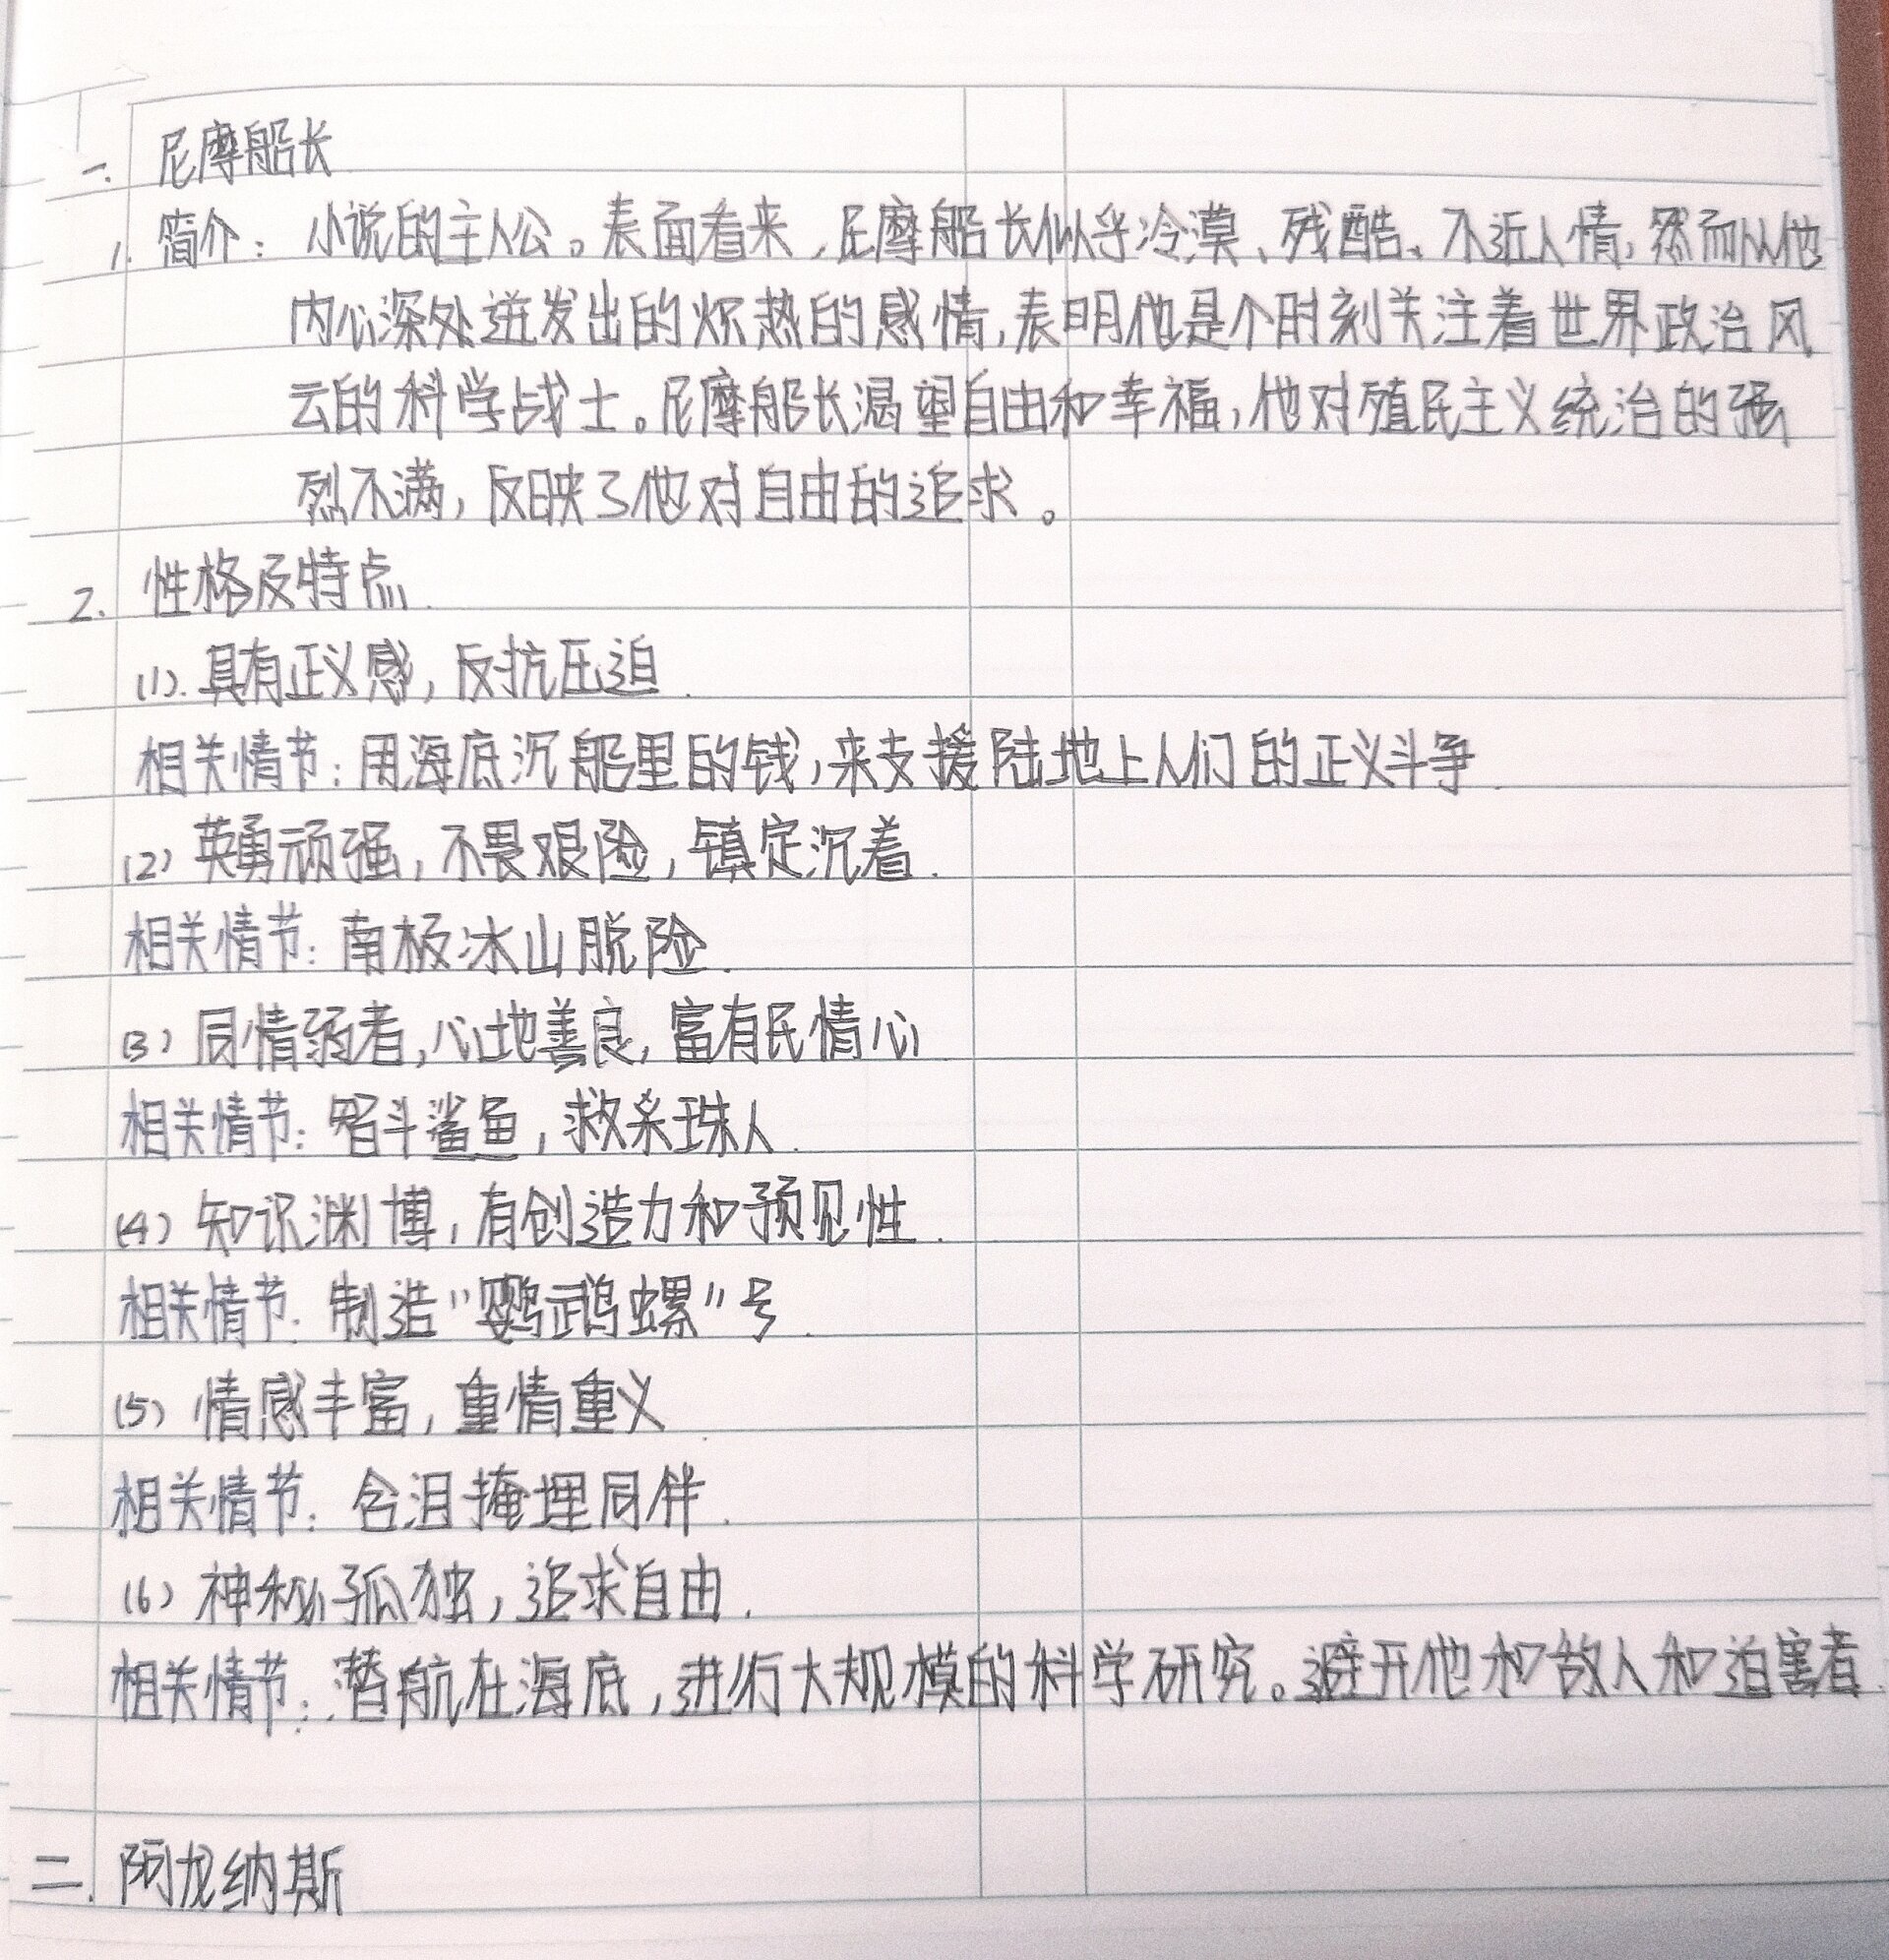 一. 尼摩船长
1. 简介：小说的主人公。表面看来，尼摩船长似乎冷漠、残酷、不近人情，然而从他
内心深处迸发出的炽热的感情，表明他是个时刻关注着世界政治风
云的科学战士。尼摩船长渴望自由和幸福，他对殖民主义统治的强
烈不满，反映了他对自由的追求。
2. 性格及特点.
(1). 具有正义感，反抗压迫.
相关情节：用海底沉船里的钱，来支援陆地上人们的正义斗争.
(2) 英勇顽强，不畏艰险，镇定沉着.
相关情节：南极冰山脱险.
(3) 同情弱者，心地善良，富有民情心
相关情节：智斗鲨鱼，救采珠人.
(4) 知识渊博，有创造力和预见性.
相关情节：制造“鹦鹉螺”号.
(5) 情感丰富，重情重义.
相关情节：含泪掩埋同伴.
(6) 神秘孤独，追求自由.
相关情节：潜航在海底，进行大规模的科学研究。避开他和敌人和迫害者.
二. 阿龙纳斯